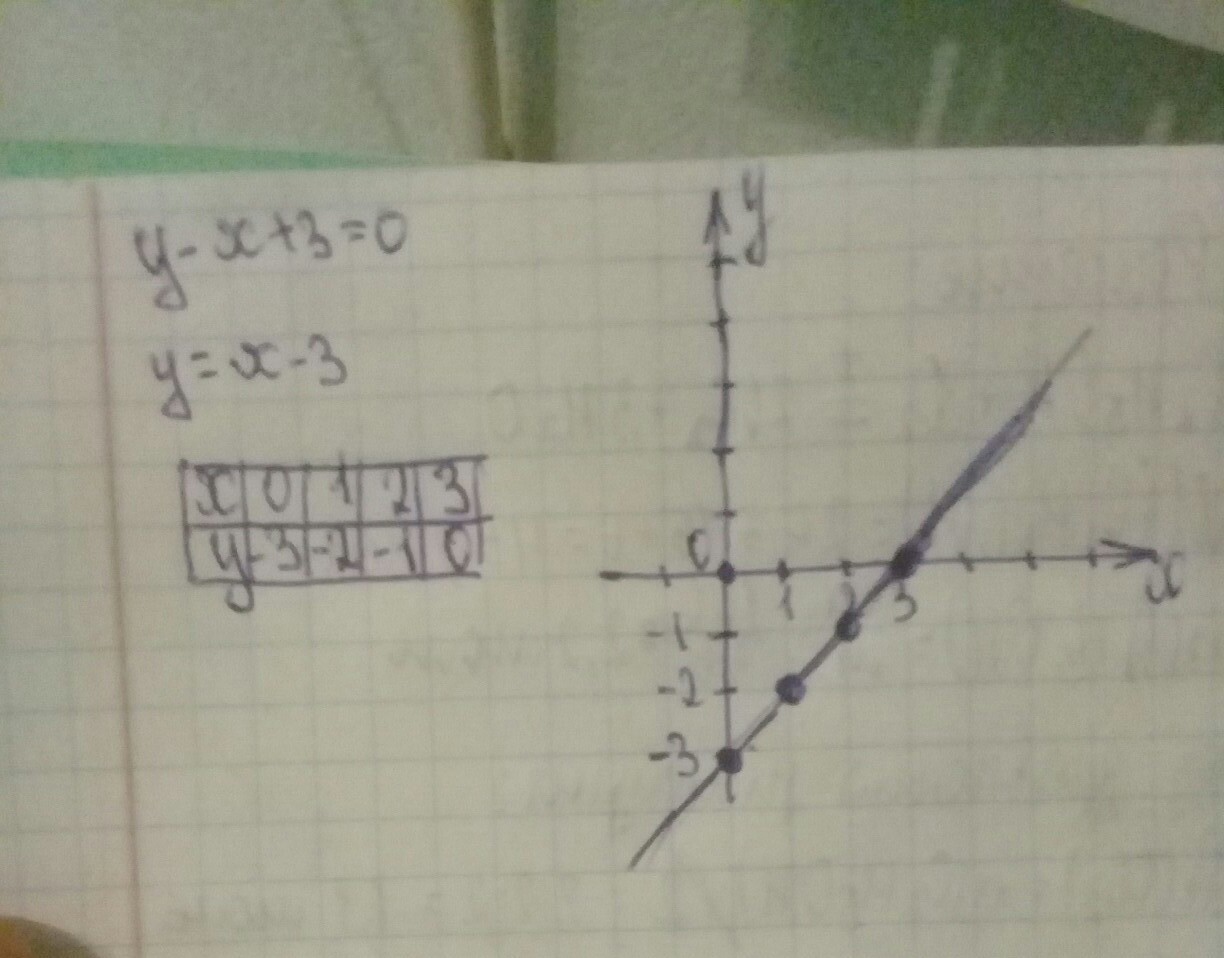 y-x+3=0
y=x-3
x 0 1 2 3
y -3 -2 -1 0
y
0
x
1 2 3
-1
-2
-3